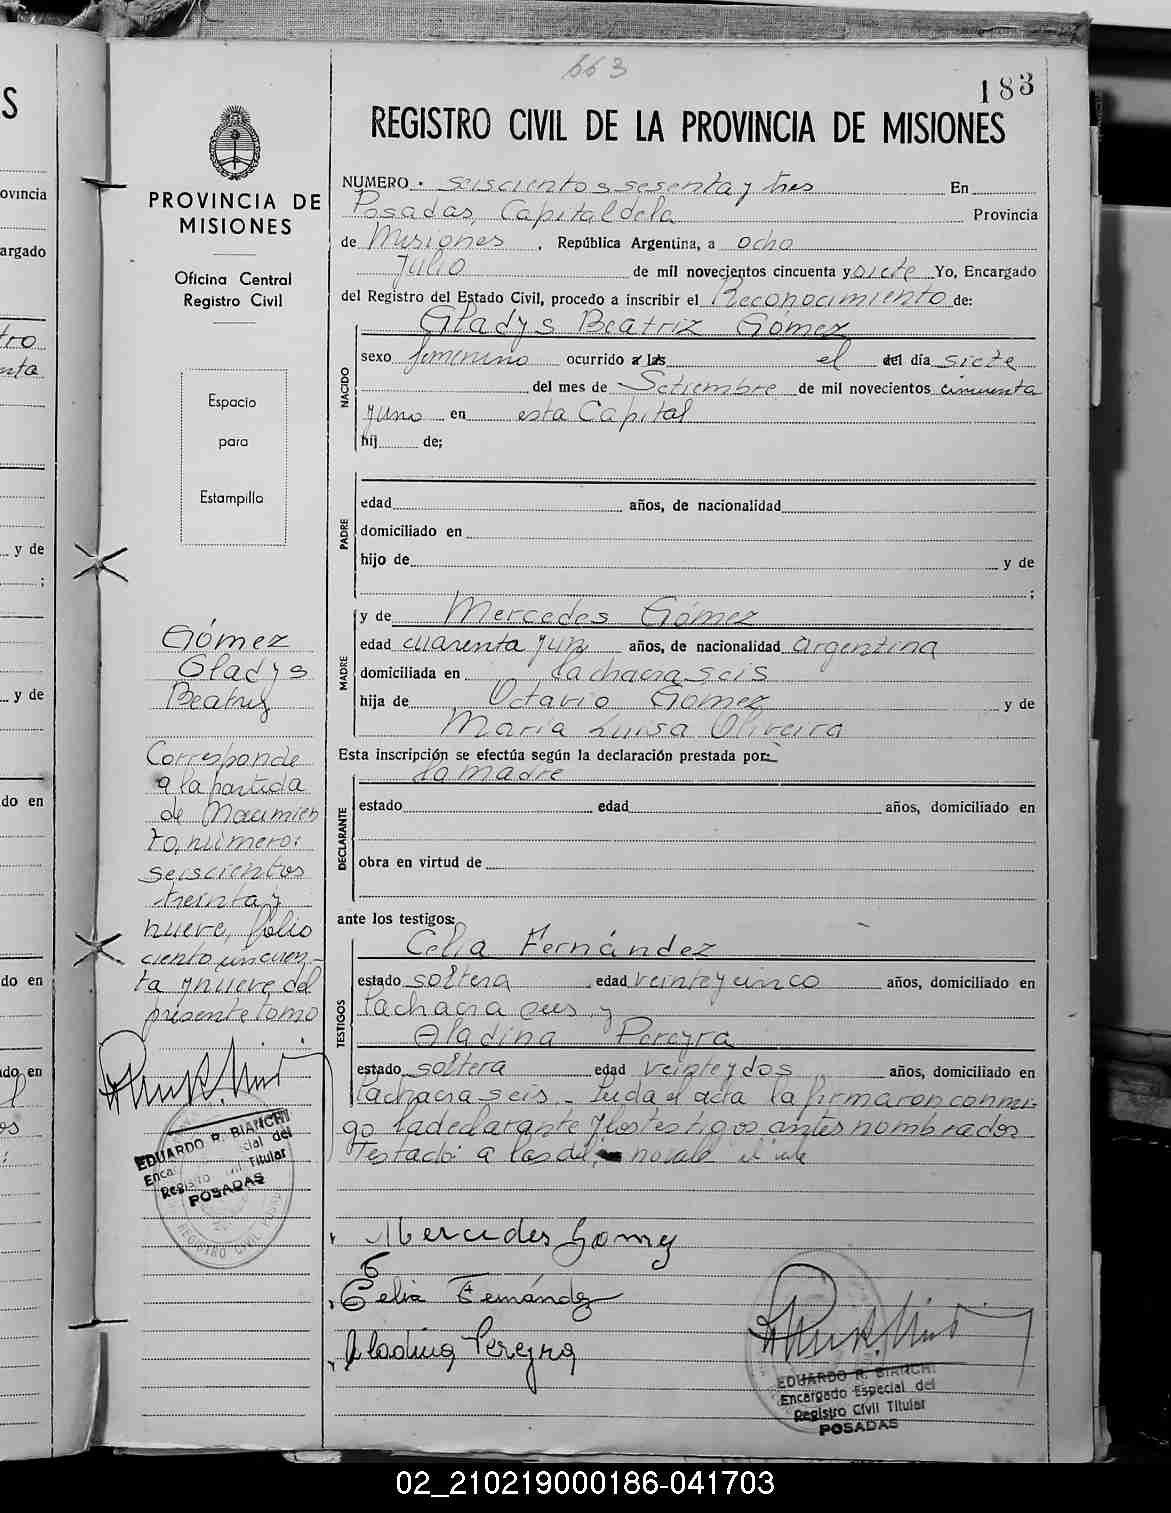 663
183
REGISTRO CIVIL DE LA PROVINCIA DE MISIONES
PROVINCIA DE
MISIONES
Oficina Central
Registro Civil
Espacio
para
Estampilla
Gómez
Gladys
Beatriz
Corresponde
a la partida
de Nacimien
to, número:
seiscientos
treinta y
nueve, folio
ciento cincuen-
ta y nueve del
presente tomo
EDUARDO R. BIANCHI
Registro Civil Titular
POSADAS
NUMERO seiscientos sesenta y tres En
Posadas, Capital de la Provincia
de Misiones, República Argentina, a ocho
Julio de mil novecientos cincuenta y siete Yo, Encargado
del Registro del Estado Civil, procedo a inscribir el Reconocimiento de:
Gladys Beatriz Gómez
NACIDO
sexo femenino ocurrido a las el del día siete
del mes de Setiembre de mil novecientos cincuenta
y uno en esta Capital
hij de;
PADRE
edad años, de nacionalidad
domiciliado en
hijo de y de
;
MADRE
y de Mercedes Gómez
edad cuarenta y un años, de nacionalidad argentina
domiciliada en la chacra seis
hija de Octavio Gómez y de
María Luisa Oliveira
Esta inscripción se efectúa según la declaración prestada por:
la madre
DECLARANTE
estado edad años, domiciliado en
obra en virtud de
ante los testigos:
TESTIGOS
Celia Fernández
estado soltera edad veinte y cinco años, domiciliado en
la chacra seis y
Aladina Pereyra
estado soltera edad veinte y dos años, domiciliado en
la chacra seis.- Leida el acta la firmaron conmi-
go la declarante y los testigos antes nombrados
Testado: a las del: no vale
Mercedes Gomez
Celia Fernández
Aladina Pereyra
EDUARDO R. BIANCHI
Encargado Especial del
Registro Civil Titular
POSADAS
02_210219000186-041703